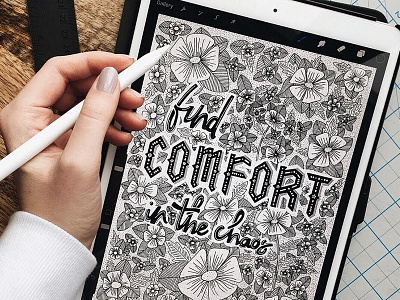 Gallery
find
COMFORT
in the chaos